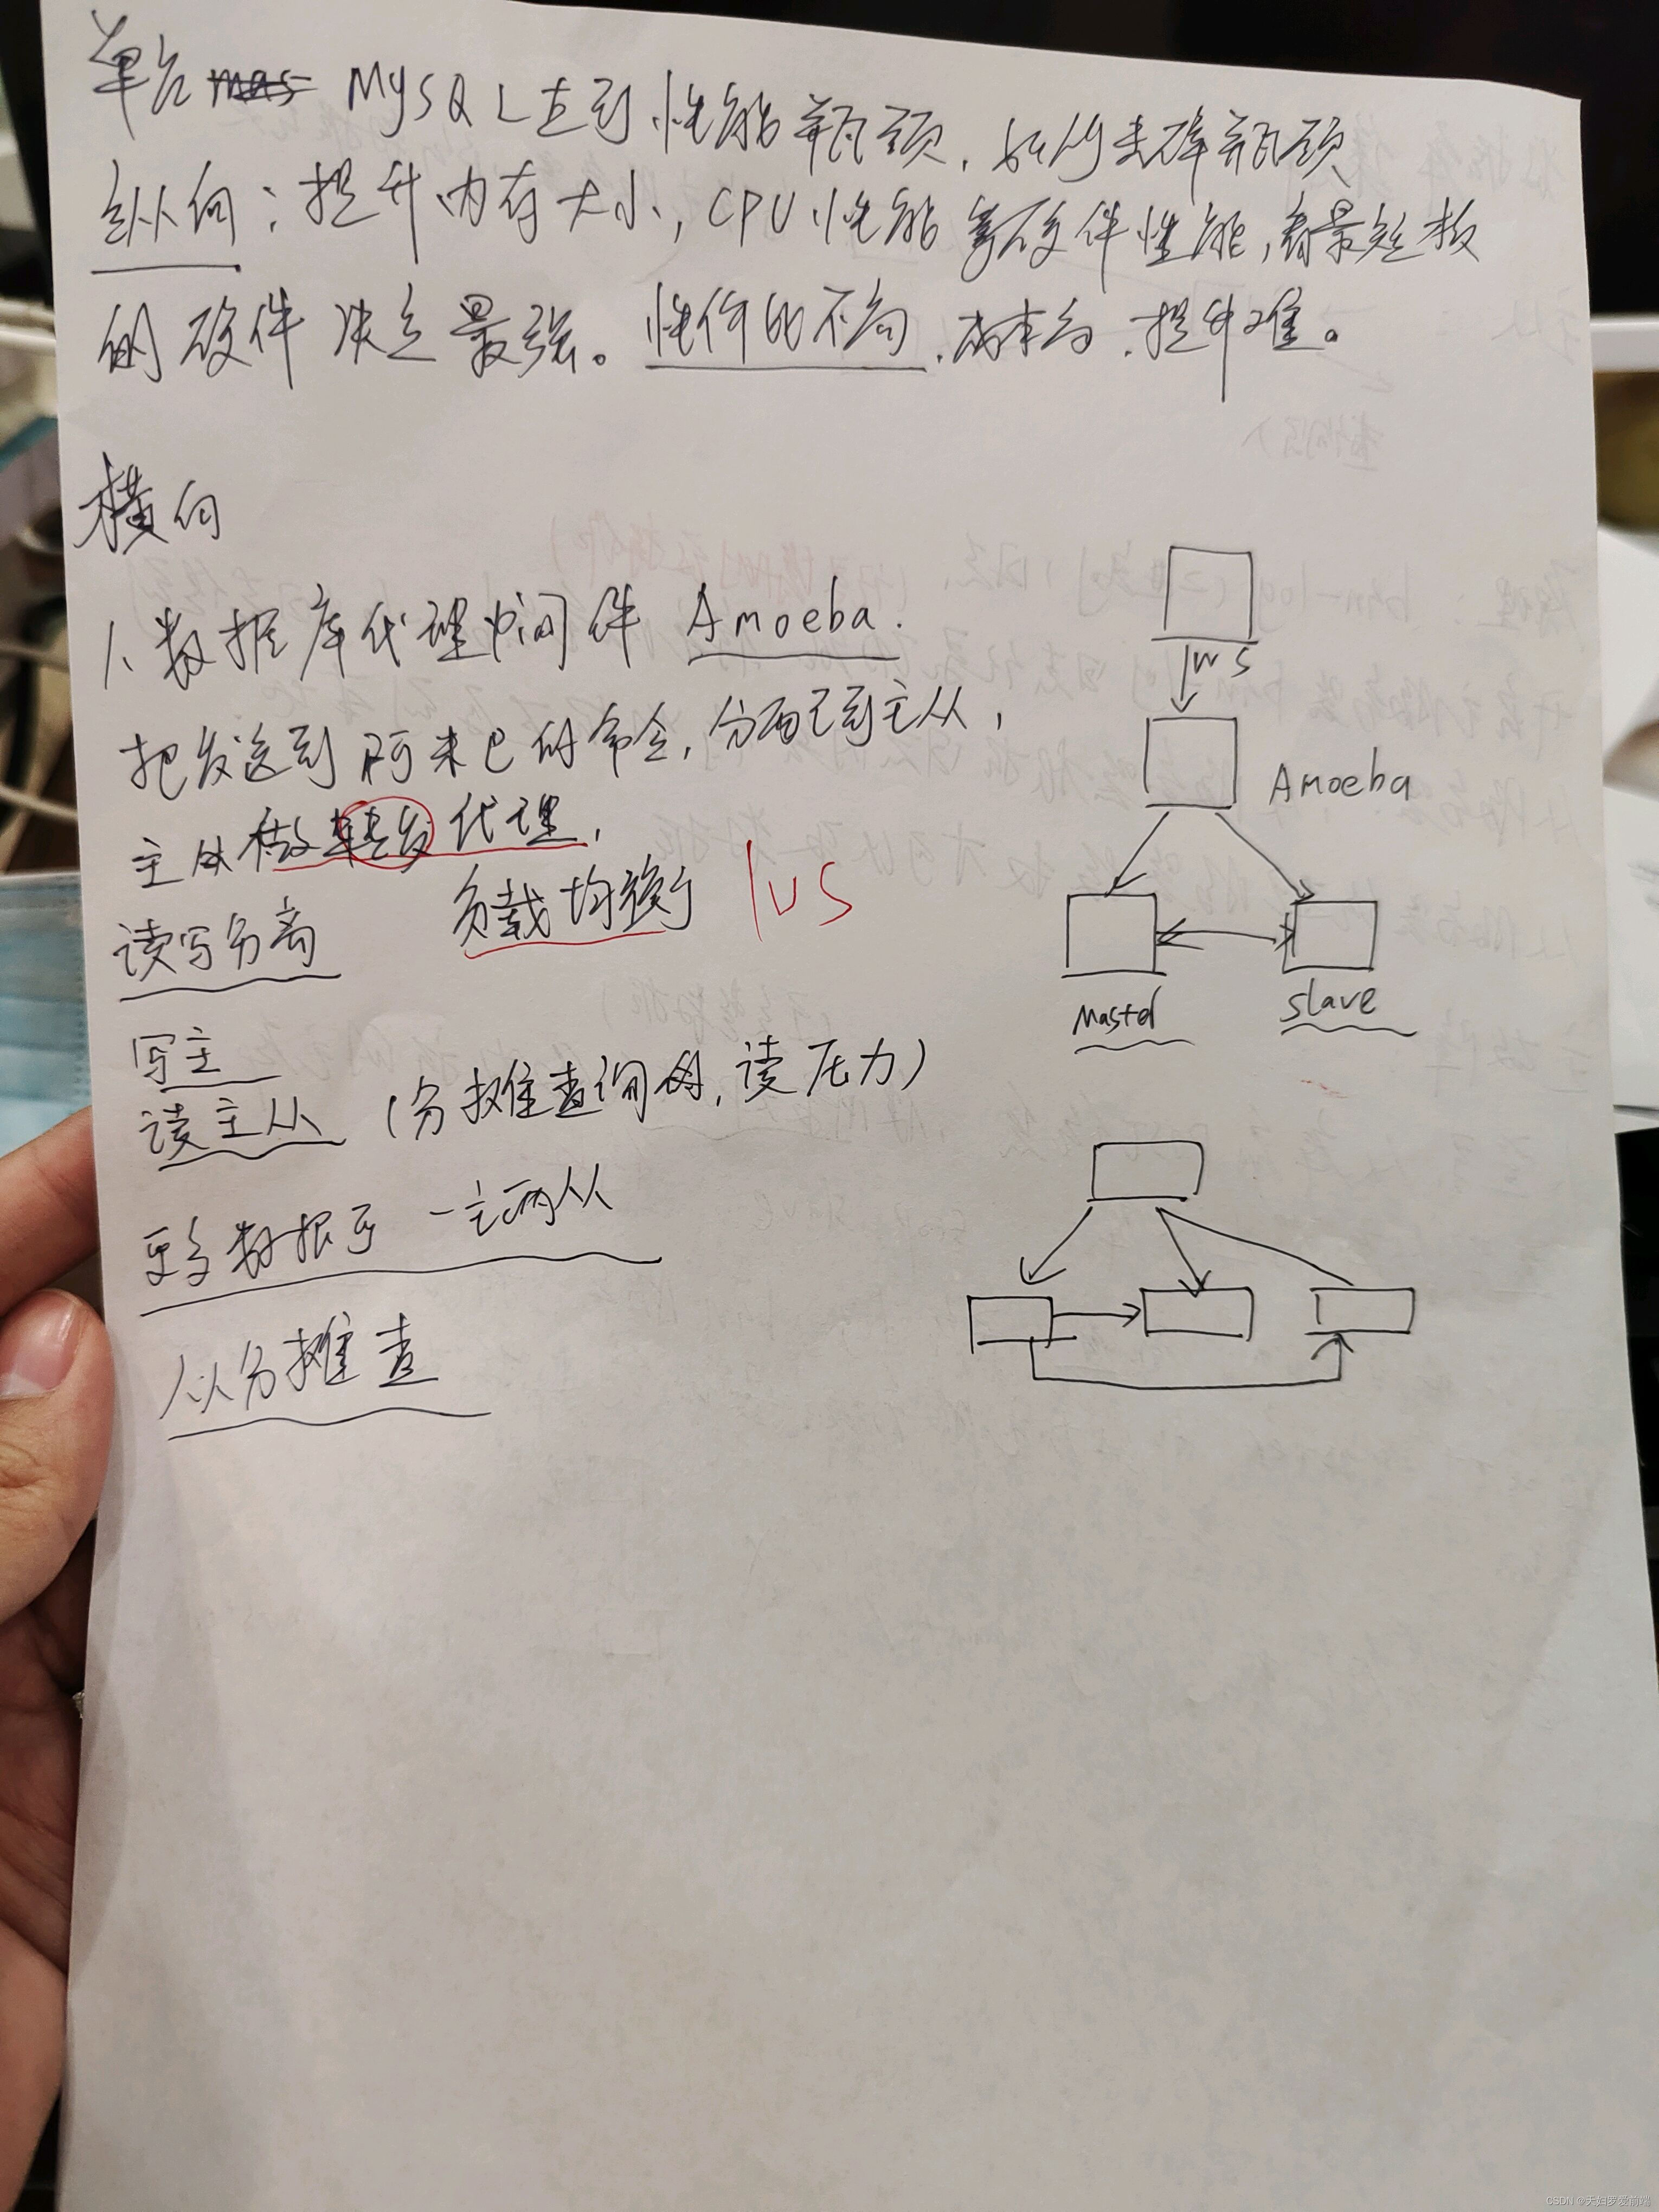 单台 MySQL 达到性能瓶颈，如何去破瓶颈
纵向：提升内存大小，CPU性能等硬件性能，看最短板
的硬件决定最强。性价比不高，成本高，提升难。
横向
1、数据库代理中间件 Amoeba.
把发送到阿米巴的命令，分配到主从，
主从做转发代理，
读写分离 负载均衡 lvs
写主
读主从（分摊查询的，读压力）
更多数据可 一主两从
从分摊查
lvs
Amoeba
Master
slave
CSDN @天妇罗爱前端